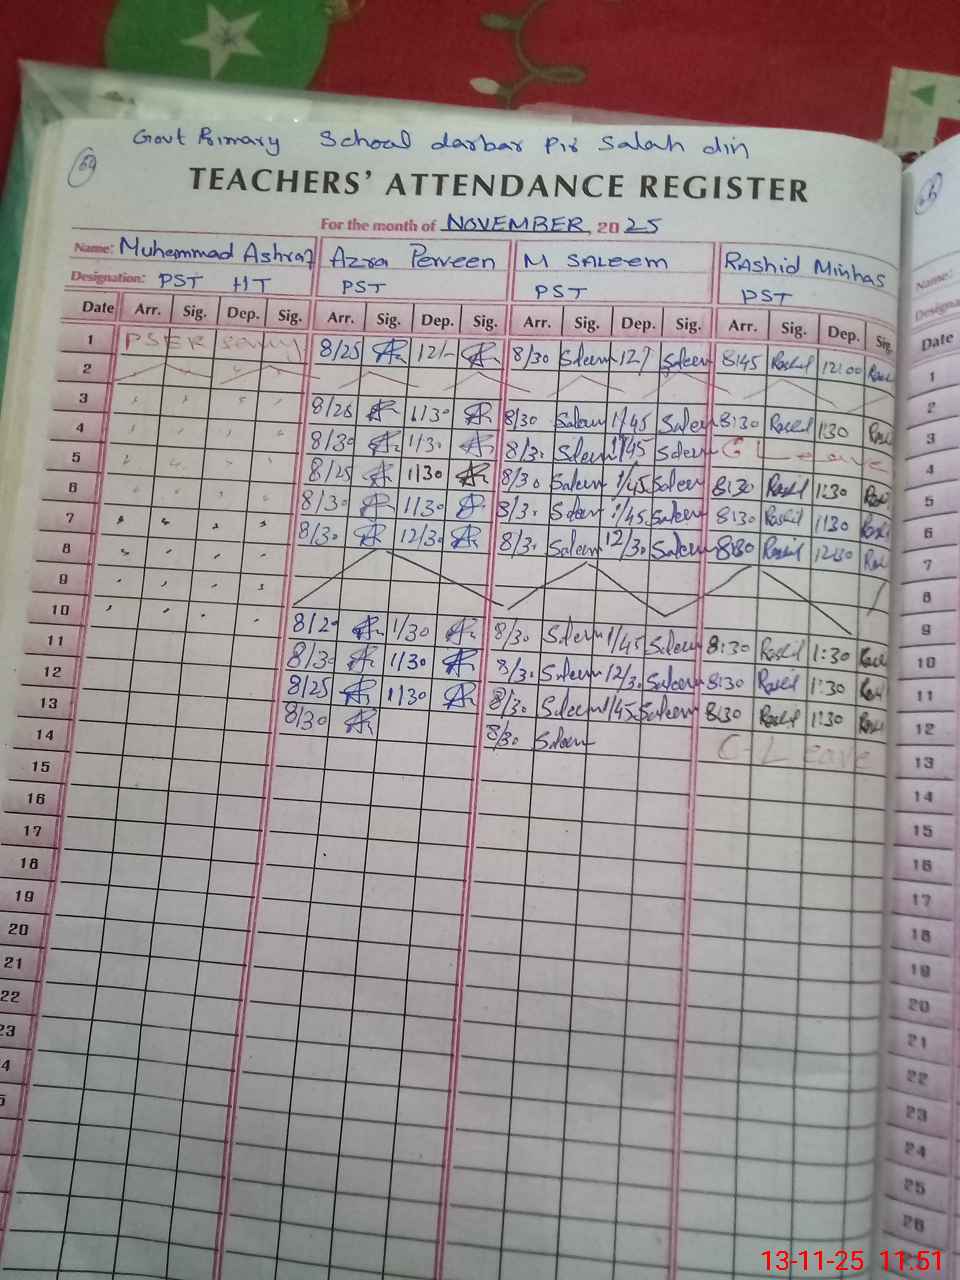 Govt Primary School darbar Pir Salah din
69
TEACHERS' ATTENDANCE REGISTER
For the month of NOVEMBER, 2025
Name: Muhammad Ashraf Azra Perveen M SALEEM RAShid Minhas
Designation: PST HT PST PST PST
Date Arr. Sig. Dep. Sig. Arr. Sig. Dep. Sig. Arr. Sig. Dep. Sig. Arr. Sig. Dep. Sig. Date
1 8/25 12/- 8/30 Saleem Saleem 8:45 Rashid 12:00 1
2 2
3 8/28 1/30 8/30 Saleem 1/45 Saleem 8:30 Rashid 1:30 3
4 8/30 1/30 8/30 Saleem 1/45 Saleem C L eave 4
5 8/25 1130 8/30 Saleem 1/45 Saleem 8:30 Rashid 1:30 5
6 8/30 1130 8/30 Saleem 1/45 Saleem 8:30 Rashid 1130 6
7 8/30 12/30 8/30 Saleem 12/30 Saleem 8:30 Rashid 12:30 7
8 8
9 9
10 8/29 1/30 8/30 Saleem 1/45 Saleem 8:30 Rashid 1:30 10
11 8/30 1/30 8/30 Saleem 12/30 Saleem 8:30 Rashid 1:30 11
12 8/25 1130 8/30 Saleem 1/45 Saleem 8:30 Rashid 1:30 12
13 8/30 8/30 Saleem C-L eave 13
14 14
15 15
16 16
17 17
18 18
19 19
20 20
21 21
22 22
23 23
4 24
5 25
26
13-11-25 11:51